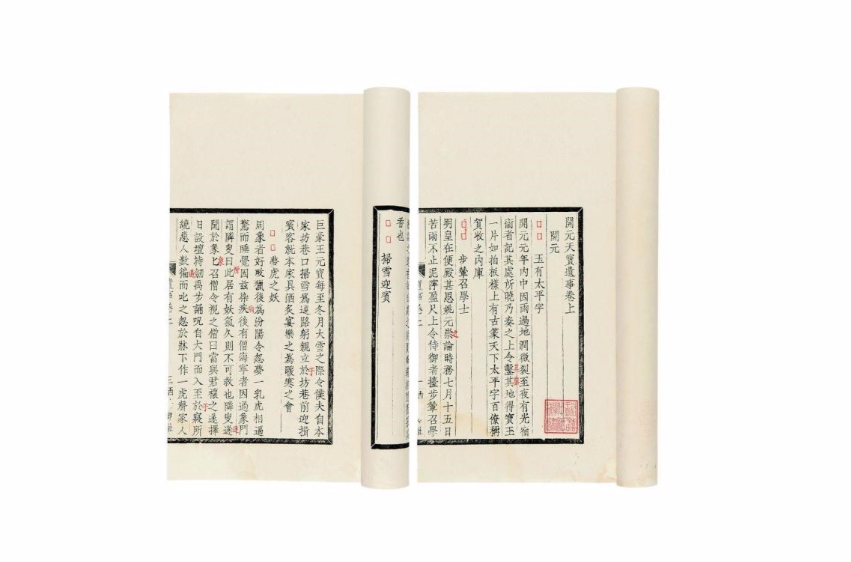 開元天寶遺事卷上
開元
玉有太平字
開元元年內中因雨過地潤微裂至夜有光宿
衛者記其處所曉乃奏之上令鑿其地得寶玉
一片如拍板樣上有古篆天下太平字百僚稱
賀收之內庫
步輦召學士
明皇在便殿甚思姚元崇論時務七月十五日
苦雨不止泥濘盈尺上令侍御者擡步輦召學
香也
掃雪迎賓
巨豪王元寶每至冬月大雪之際令僕夫自本
家坊巷口掃雪爲逕路躬親立於坊巷前迎揖
賓客就本家具酒炙宴樂之爲暖寒之會
夢虎之妖
周象者好畋獵後爲汾陽令忽夢一乳虎相逼
驚而睡覺因茲染疾後有僧海寧者因過象門
謂隣叟曰此居有妖氣久則不可救也隣叟遂
聞於象匕召僧令視之僧曰當與君禳之遂擇
日設壇持劒禹步誦呪自大門而入至於寢所
繞患人數徧而叱之忽於牀下作一虎聲家人